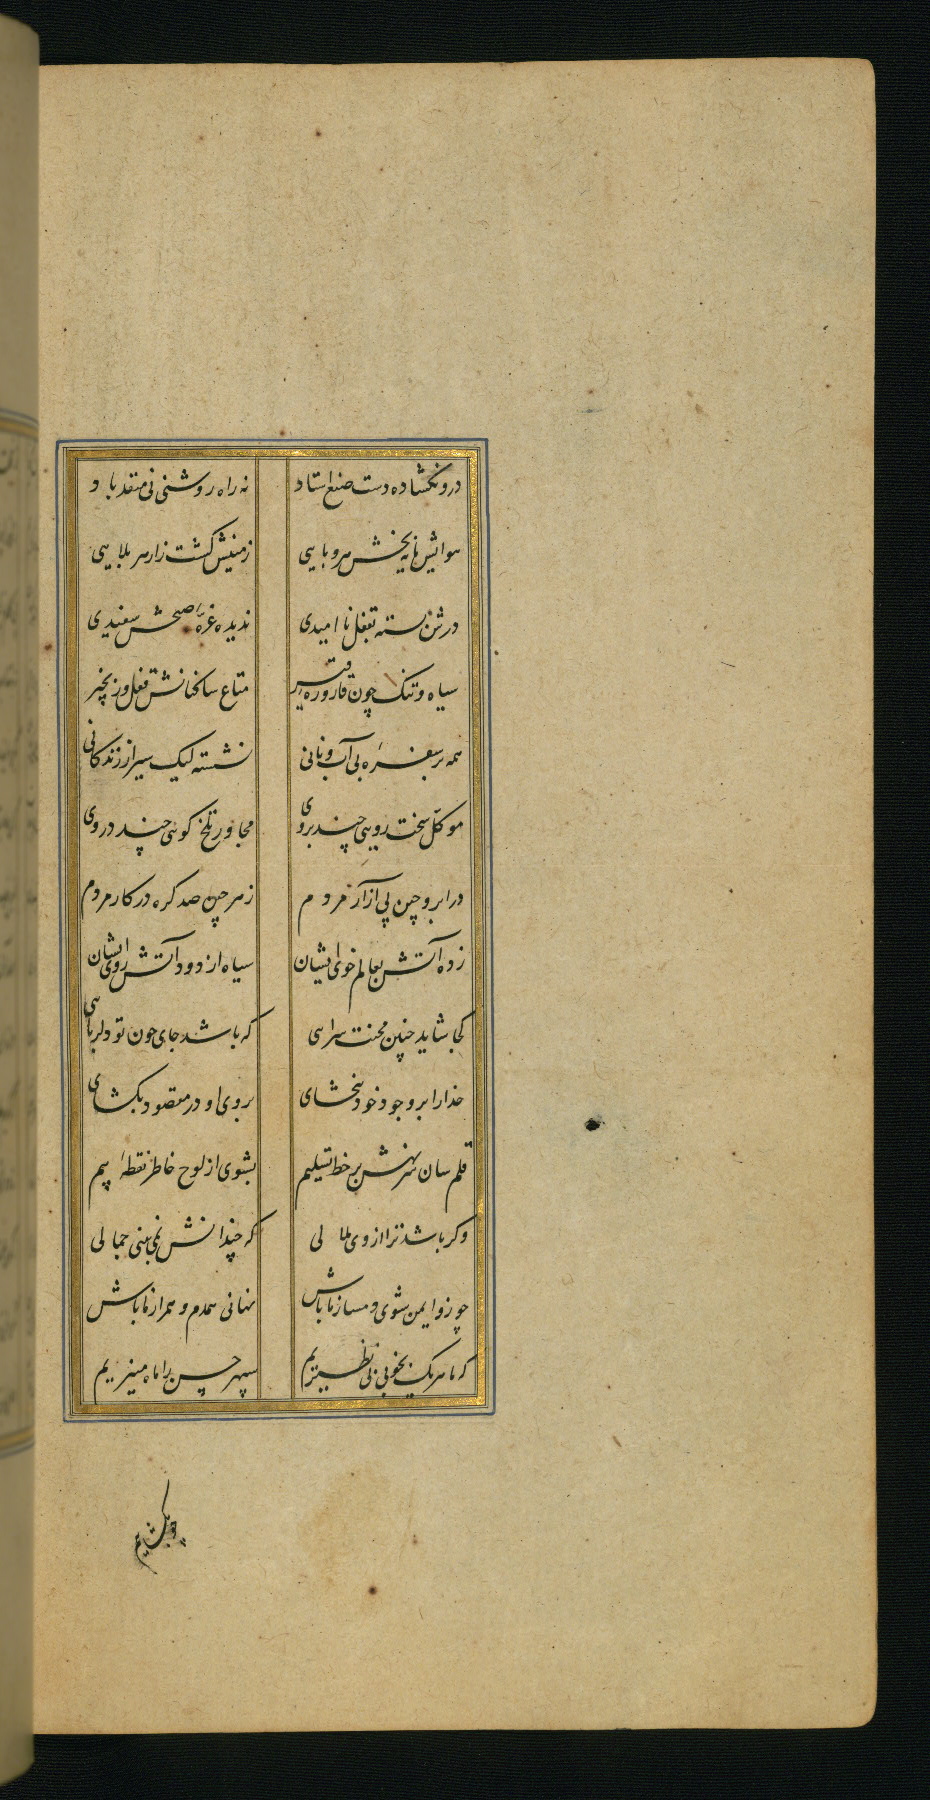 درو نکشاده دست صنع استاد نه راه روشنی نی منفذ باد
هوایش مایه بخش هر وبایی زمینش کشت زار هر بلایی
درش بسته بقفل ناامیدی ندیده غره صبحش سفیدی
سیاه و تنک چون قاروره قیر متاع ساکنانش قفل و زنجیر
همه بر سفره بی آب و نانی نشسته لیک سیر از زندکانی
موکل سخت رویی چند بروی مجاور تلخ کویی چند دروی
در ابرو چین پی آزار مردم ز هر چین صد کره در کار مردم
زده آتش بعالم خوی ایشان سیاه از دود آتش روی ایشان
کجا شاید چنین محنت سرایی که باشد جای چون تو دلربایی
خدا را بر وجود خود ببخشای بروی او در مقصود بکشای
قلم سان سر بنهش بر خط تسلیم بشوی از لوح خاطر نقطهٔ بیم
وکر باشد ترا از وی ملالی که چندانش نمی بینی جمالی
چو زو ایمن شوی دمساز ما باش نهانی همدم و همراز ما باش
که ما هر یک بخوبی بی نظیریم سپهر حسن را ماه منیریم
چو بکشاییم